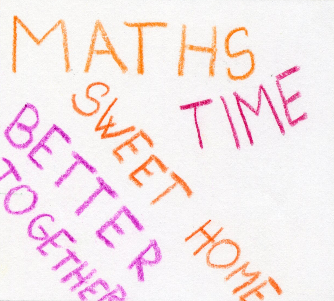 MATHS
TIME
SWEET
HOME
BETTER
TOGETHER